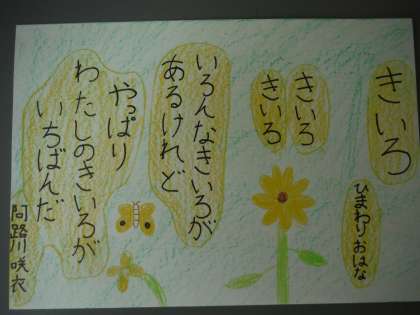 きいろ
ひまわりおはな
きいろ
きいろ
いろんなきいろが
あるけれど
やっぱり
わたしのきいろが
いちばんだ
阿路川咲衣